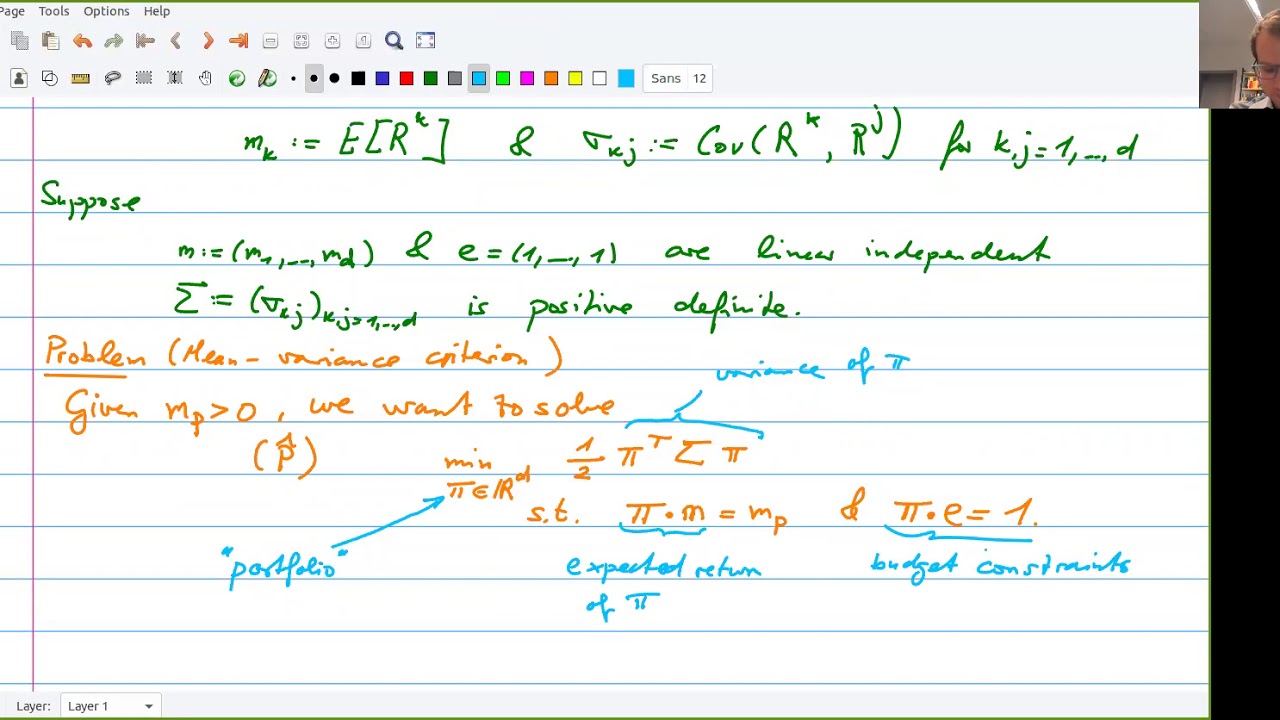 Page Tools Options Help
Sans 12
m_k := E[R^k] & σ_kj := Cov(R^k, R^j) for k,j=1,...,d
Suppose
m:=(m_1,...,m_d) & e=(1,...,1) are linear independent
Σ := (σ_kj)_k,j=1,...,d is positive definite.
Problem (Mean-variance criterion)
variance of π
Given m_p>0, we want to solve
(P̂) min π∈ℝ^d 1/2 π^T Σ π
s.t. π·m = m_p & π·e = 1.
"portfolio" expected return budget constraints
of π
Layer: Layer 1